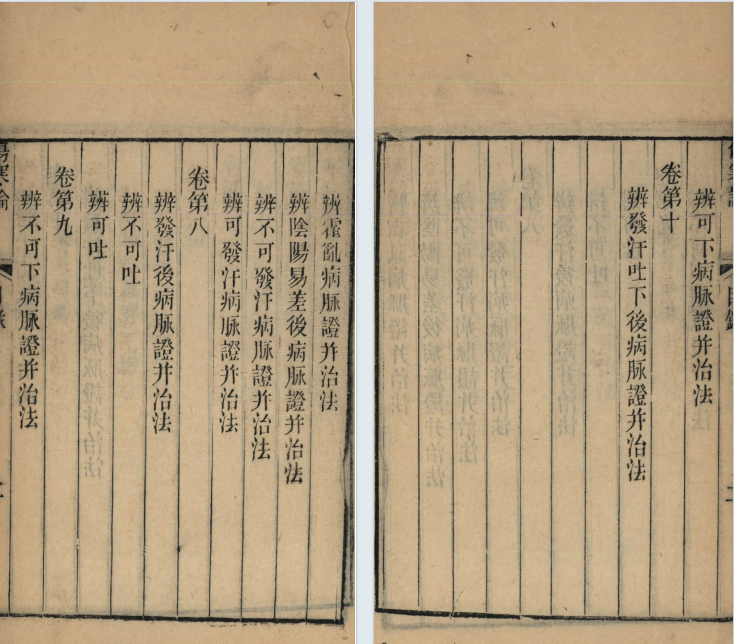 辨霍亂病脉證并治法
辨陰陽易差後病脉證并治法
辨不可發汗病脉證并治法
辨可發汗病脉證并治法
卷第八
辨發汗後病脉證并治法
辨不可吐
辨可吐
卷第九
辨不可下病脉證并治法
傷寒論
目錄
辨可下病脉證并治法
卷第十
辨發汗吐下後病脉證并治法